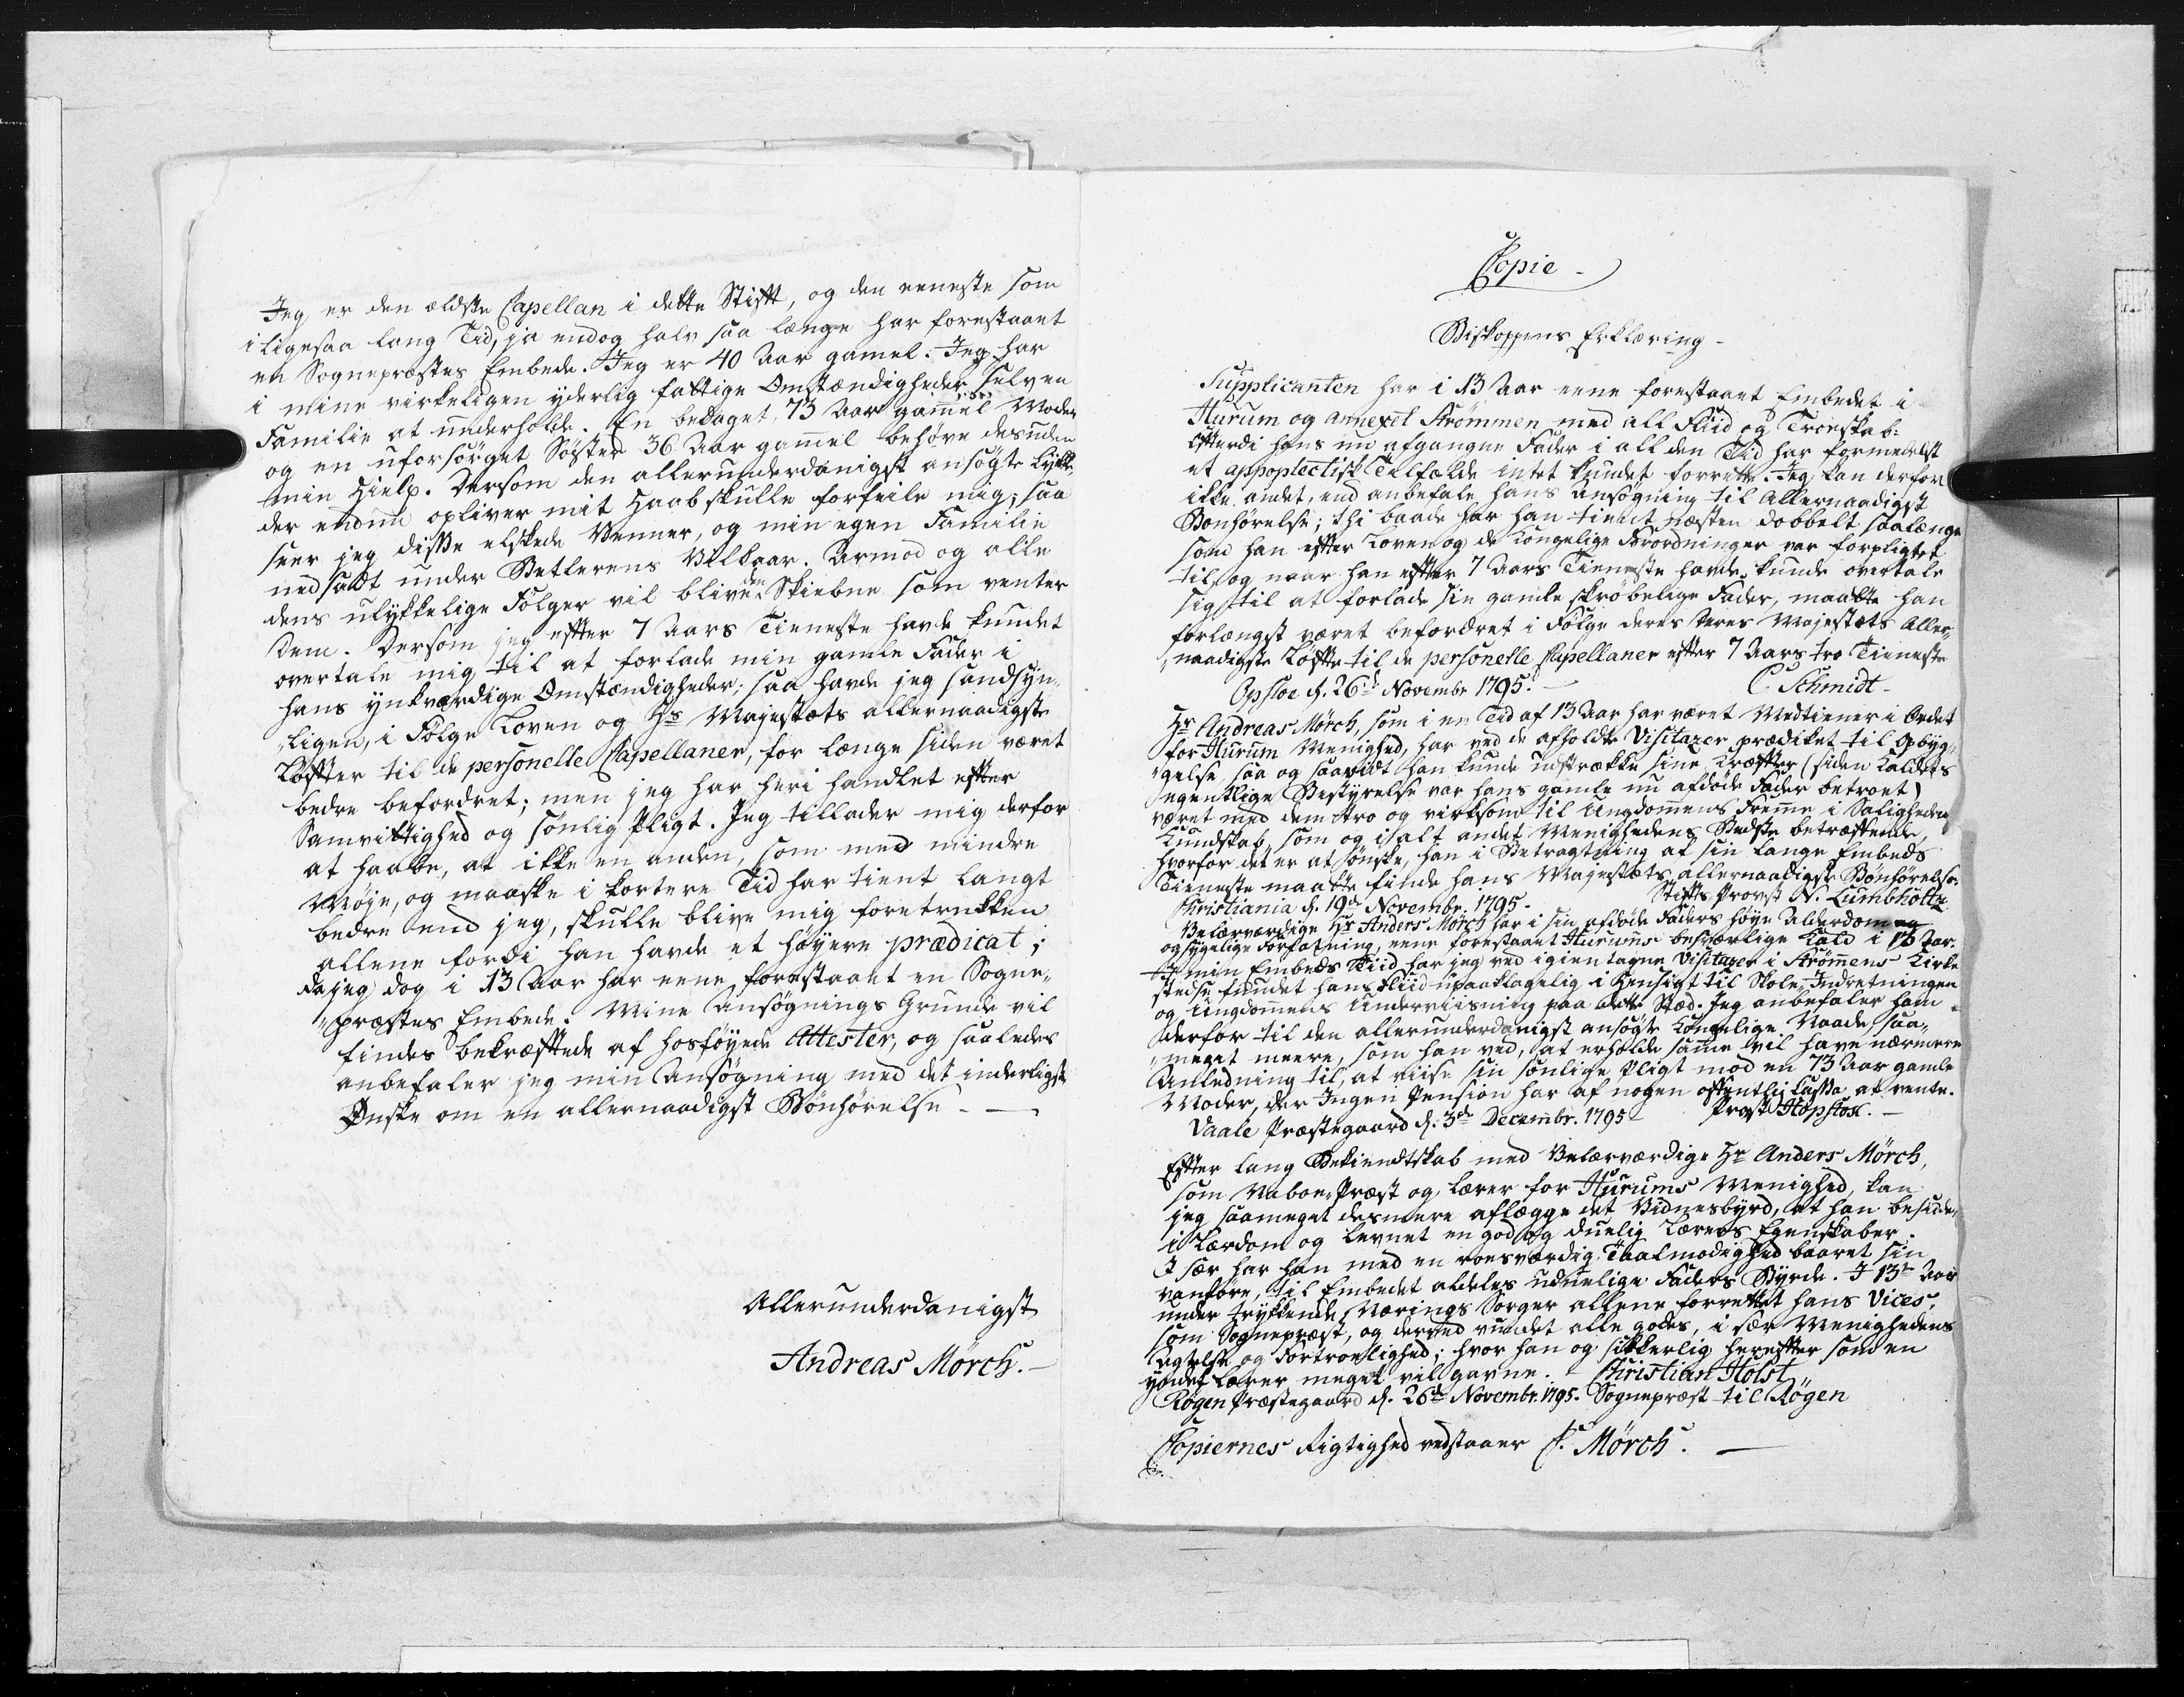 Jeg er den ældste Capellan i dette Stift, og den eeneste som
i ligesaa lang Tid, ja endog halv saa længe har forestaaet
en Sognepræstes Embede. Jeg er 40 Aar gamel. Jeg har
i mine virkeligen yderlig fattige Omstændigheder selv en
Familie at underholde. En bedaget, 73 Aar gammel Moder
og en uforsørget Søster 36 Aar gammel behøve desuden
min Hielp. Dersom den allerunderdanigst ansøgte Lykke,
der endnu opliver mit Haab skulle forfeile mig; saa
seer jeg disse elskede Venner, og min egen Familie
nedsadt under Betlerens Vilkaar. Armod og alle
dens ulykkelige Følger vil blive den Skiebne som venter
Dem. Dersom jeg efter 7 Aars Tieneste havde kundet
overtale mig til at forlade min gamle Fader i
hans ynkværdige Omstændigheder; saa havde jeg sandsyn-
ligen, i Følge Loven og Hs Majestæts allernaadigste
Løfter til de personelle Capellaner, for længe siden været
bedre befordret; men jeg har heri handlet efter
Samvittighed og sønlig Pligt. Jeg tillader mig derfor
at haabe, at ikke en anden, som med mindre
Møje, og maaske i kortere Tid har tient langt
bedre end jeg, skulle blive mig foretrukken
allene fordi han havde et høyere prædicat;
da jeg dog i 13 Aar har eene forestaaet en Sogne-
præstes Embede. Mine Ansøgnings Grunde vil
findes bekræftede af hosføyede Attester, og saaledes
anbefaler jeg min Ansøgning med det inderligste
Ønske om en allernaadigst Bønhørelse.
Allerunderdanigst
Andreas Mørch.
Copie
Biskoppens Erklæring
Supplicanten har i 13 Aar eene forestaaet Embedet i
Hurum og annexet Strømmen med all Fliid og Troeskab.
Efterdi hans nu afgangne Fader i all den Tid har formedelst
et appoplectisk Tilfælde intet kundet forrette. Jeg kan derfor
ikke andet, end anbefale hans Ansøgning til Allernaadigst
Bønhørelse; thi baade har han tient næsten dobbelt saalænge
som han efter Loven og de Kongelige Forordninger var forpligtet
til, og naar han efter 7 Aars Tieneste havde kunde overtale
sig til at forlade sin gamle skrøbelige Fader, maatte han
forlængst været befordret i Følge deres Deres Majestæts Aller-
naadigste Løfte til de personelle Capellaner efter 7 Aars tro Tieneste
Opsloe d. 26de Novembr 1795. C. Schmidt
Hr Andreas Mörch, som i en Tid af 13 Aar har været Medtiener i Ordet
for Hurum Menighed, har ved de afholdte Visitazer prædiket til Opbyg-
gelse, saa og saavidt han kunde udstrække sine Kræfter (siden Kaldets
egentlige Bestyrelse var hans gamle nu afdøde Fader betroet)
været med dem tro og virksom til Ungdommens Fremme i Saligheden
Kundskab, som og i alt andet Menighedens Bedste betræffende,
hvorfor det er at ønske, han i Betragtning af sin lange Embeds
Tieneste maatte finde hans Majestæts allernaadigste Bønhørelse.
Christiania d. 19de Novembr. 1795. Stifts Provst N. Lumbholtz
Velærværdige Hr Anders Mörch har i sin afdøde Faders høye Alderdom og
og sygelige Forfatning, eene forestaaet Hurums besværlige Kald i 13 Aar.
I min Embeds Tiid har jeg ved igientagne Visitazer i Strømmens Kirke
stedse fundet hans Fliid upaaklagelig i Hensigt til Skole-Indretningen
og Ungdommens Underviisning paa dette Stæd. Jeg anbefaler ham
derfor til den allerunderdanigst ansøgte Kongelige Naade, saa-
meget meere, som han ved, at erholde samme vil have nærmere
Anledning til, at viise sin sønlige Pligt mod en 73 Aar gamle
Moder, der Ingen Pension har af nogen offentlig Cassa at vente.
Vaale Præstegaard d. 3de Decembr. 1795 Provst Hopstok.
Efter lang Bekiendtskab med Velærværdige Hr Anders Mörch,
som Naboe-Præst og Lærer for Hurums Menighed, kan
jeg saameget desmere aflægge det Vidnesbyrd, at han besidder
i Lærdom og Levnet en god og duelig Lærers Egenskaber.
I sær har han med en roesværdig Taalmodighed baaret sin
vanføre, til Embedet aldeles uduelige Faders Byrde. I 13te Aar
under trykkende Nærings Sorger allene forrettet hans Vices,
som Sognepræst, og derved vundet alle godes, i sær Menighedens
Agtelse og Fortroelighed; hvor han og sikkerlig herefter som en
yndet Lærer meget vil gavne. Christian Holst
Røgen Præstegaard d. 26de Novembr. 1795. Sognepræst til Røgen
Copiernes Rigtighed vedstaaer A. Mørch.